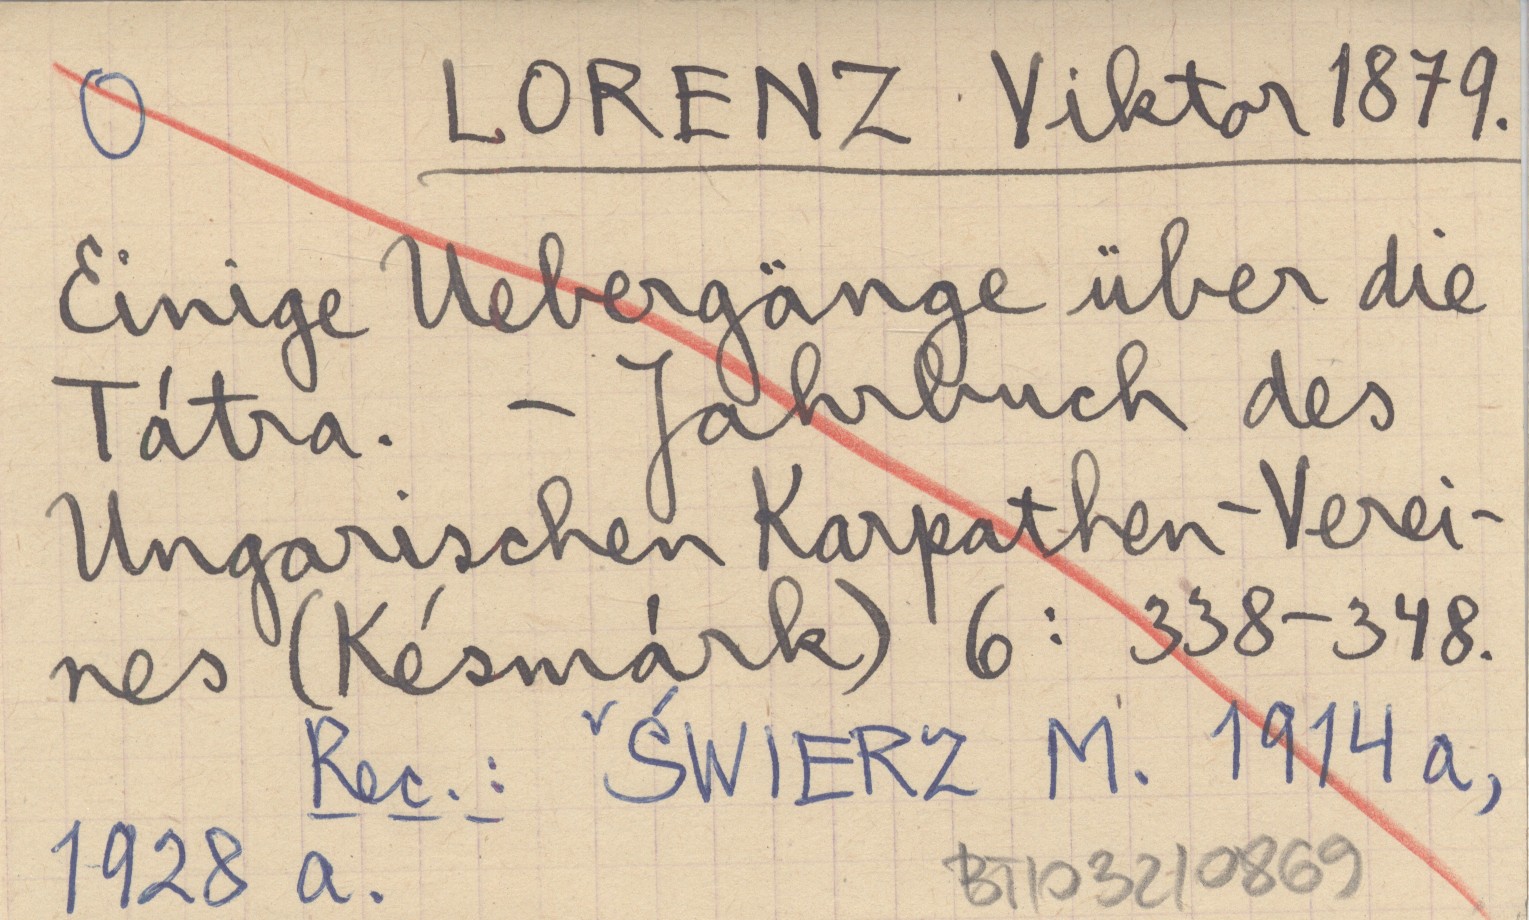 O LORENZ Viktor 1879.
Einige Uebergänge über die
Tátra. – Jahrbuch des
Ungarischen Karpathen-Verei-
nes (Késmárk) 6: 338–348.
Rec.: ŚWIERZ M. 1914 a,
1928 a.
BT|0321|0869